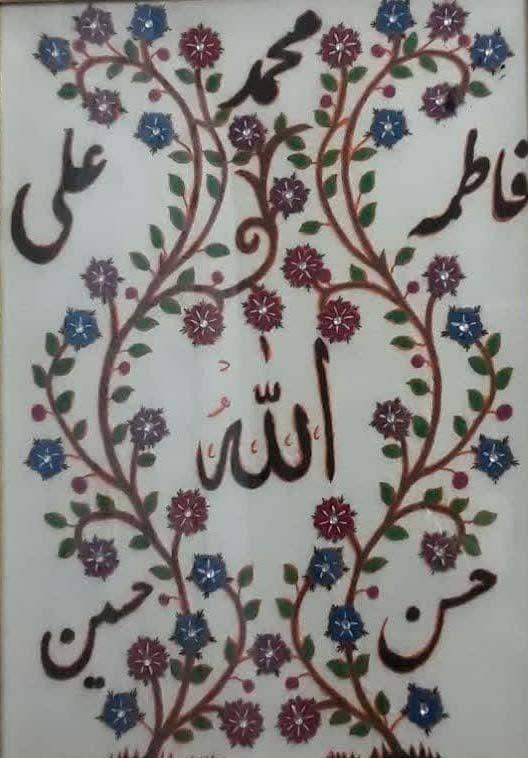 محمد
فاطمه
علی
الله
حسن
حسین